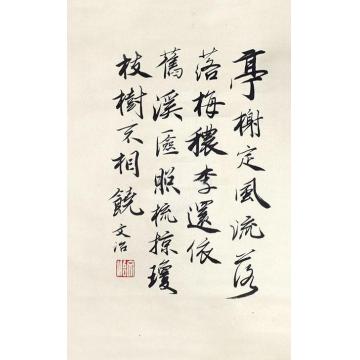 亭榭定風流落
落梅穠李還依
舊溪匳照梳掠瓊
枝樹不相饒
文治